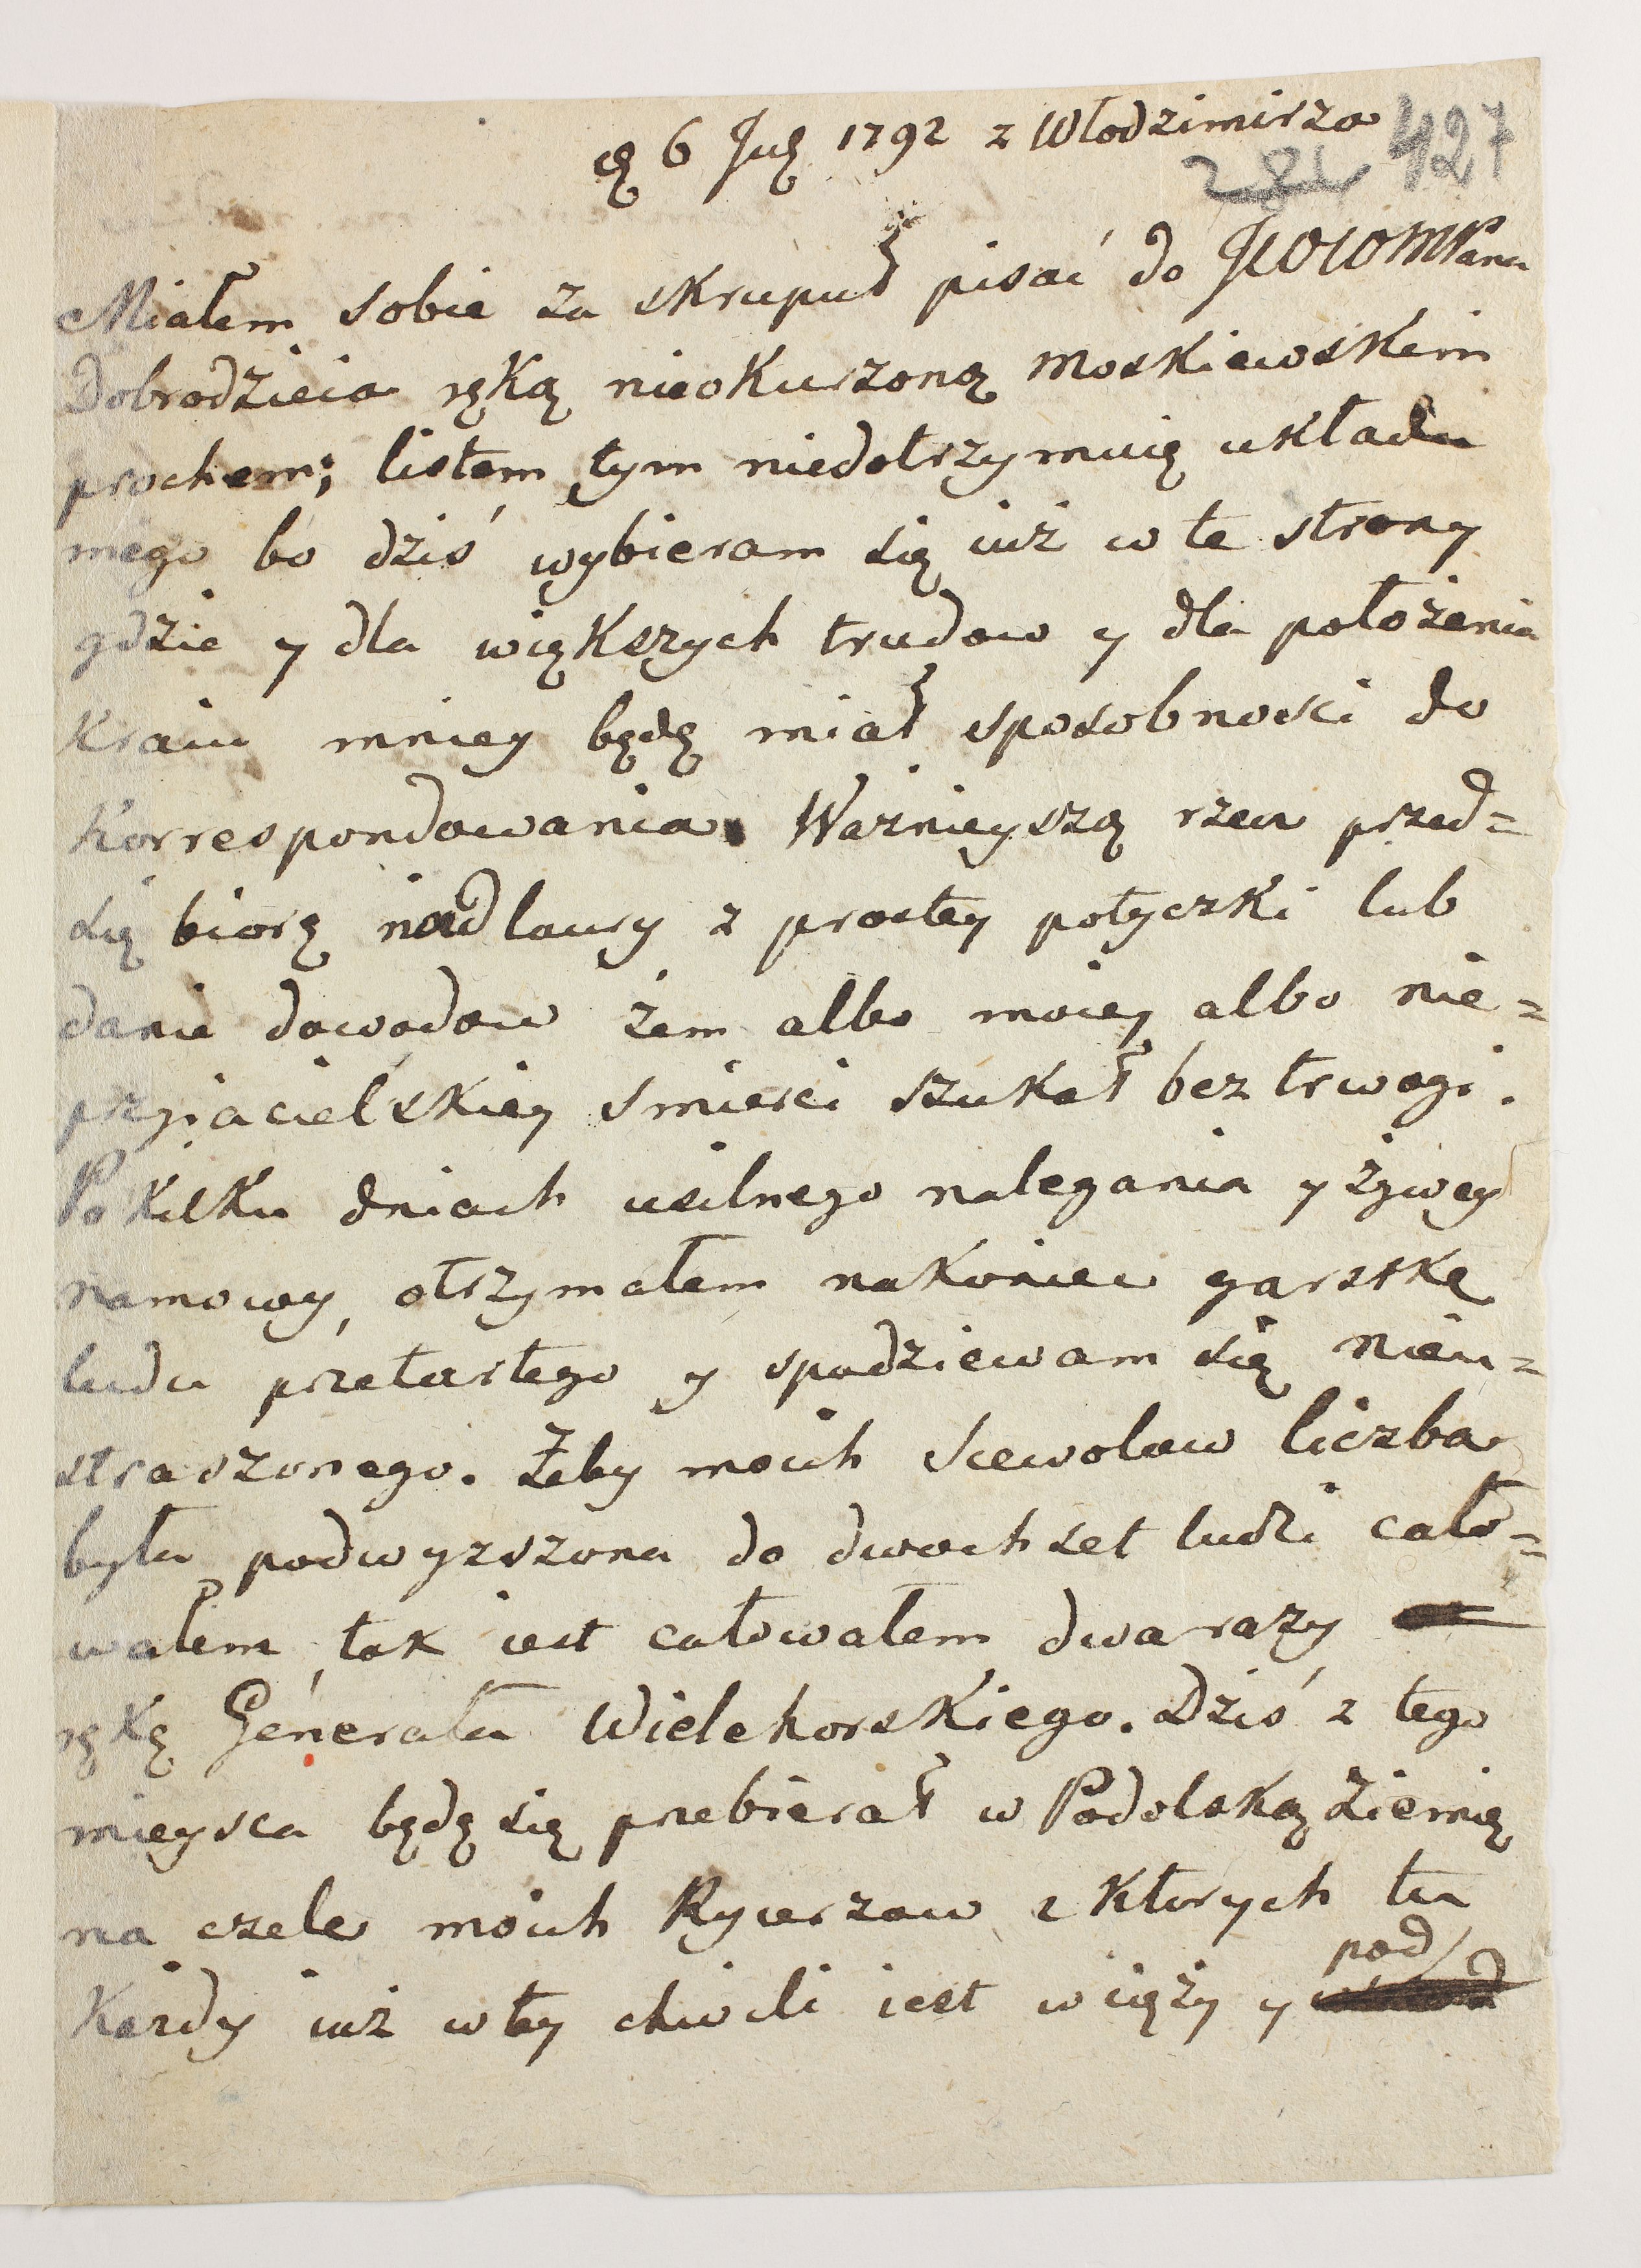 d. 6 Jul. 1792 z Włodzimirza
427
Miałem sobie za skrupuł pisać do JWWMPana
Dobrodzieia ręką nieokurzoną Moskiewskim
prochem; listem tym niedotrzymuię układu
mego bo dziś wybieram się iuż w te strony
gdzie y dla większych trudow y dla położenia
Kraiu mniey będę miał sposobności do
Korrespondowania. Ważnieyszą rzecz przed=
się biorę nad laury z prostey potyczki lub
danie dowodow żem albo moiey albo nie=
przyiacielskiey smierci szukał bez trwogi.
Po Kilku dniach usilnego nalegania y żywey
namowy, otrzymałem nakoniec garstkę
ludu przetartego y spodziewam się nieu=
straszonego. Żeby moich Scewolow liczba
była podwyzszona do dwochset ludzi cało=
wałem, tak iest całowałem dwa razy
rękę Generała Wielehorskiego. Dziś z tego
mieysca będę się przebierał w Podolską Ziemię
na czele moich Rycerzow z Których tu
Każdy iuż w tey chwili iest w ciąży y pod